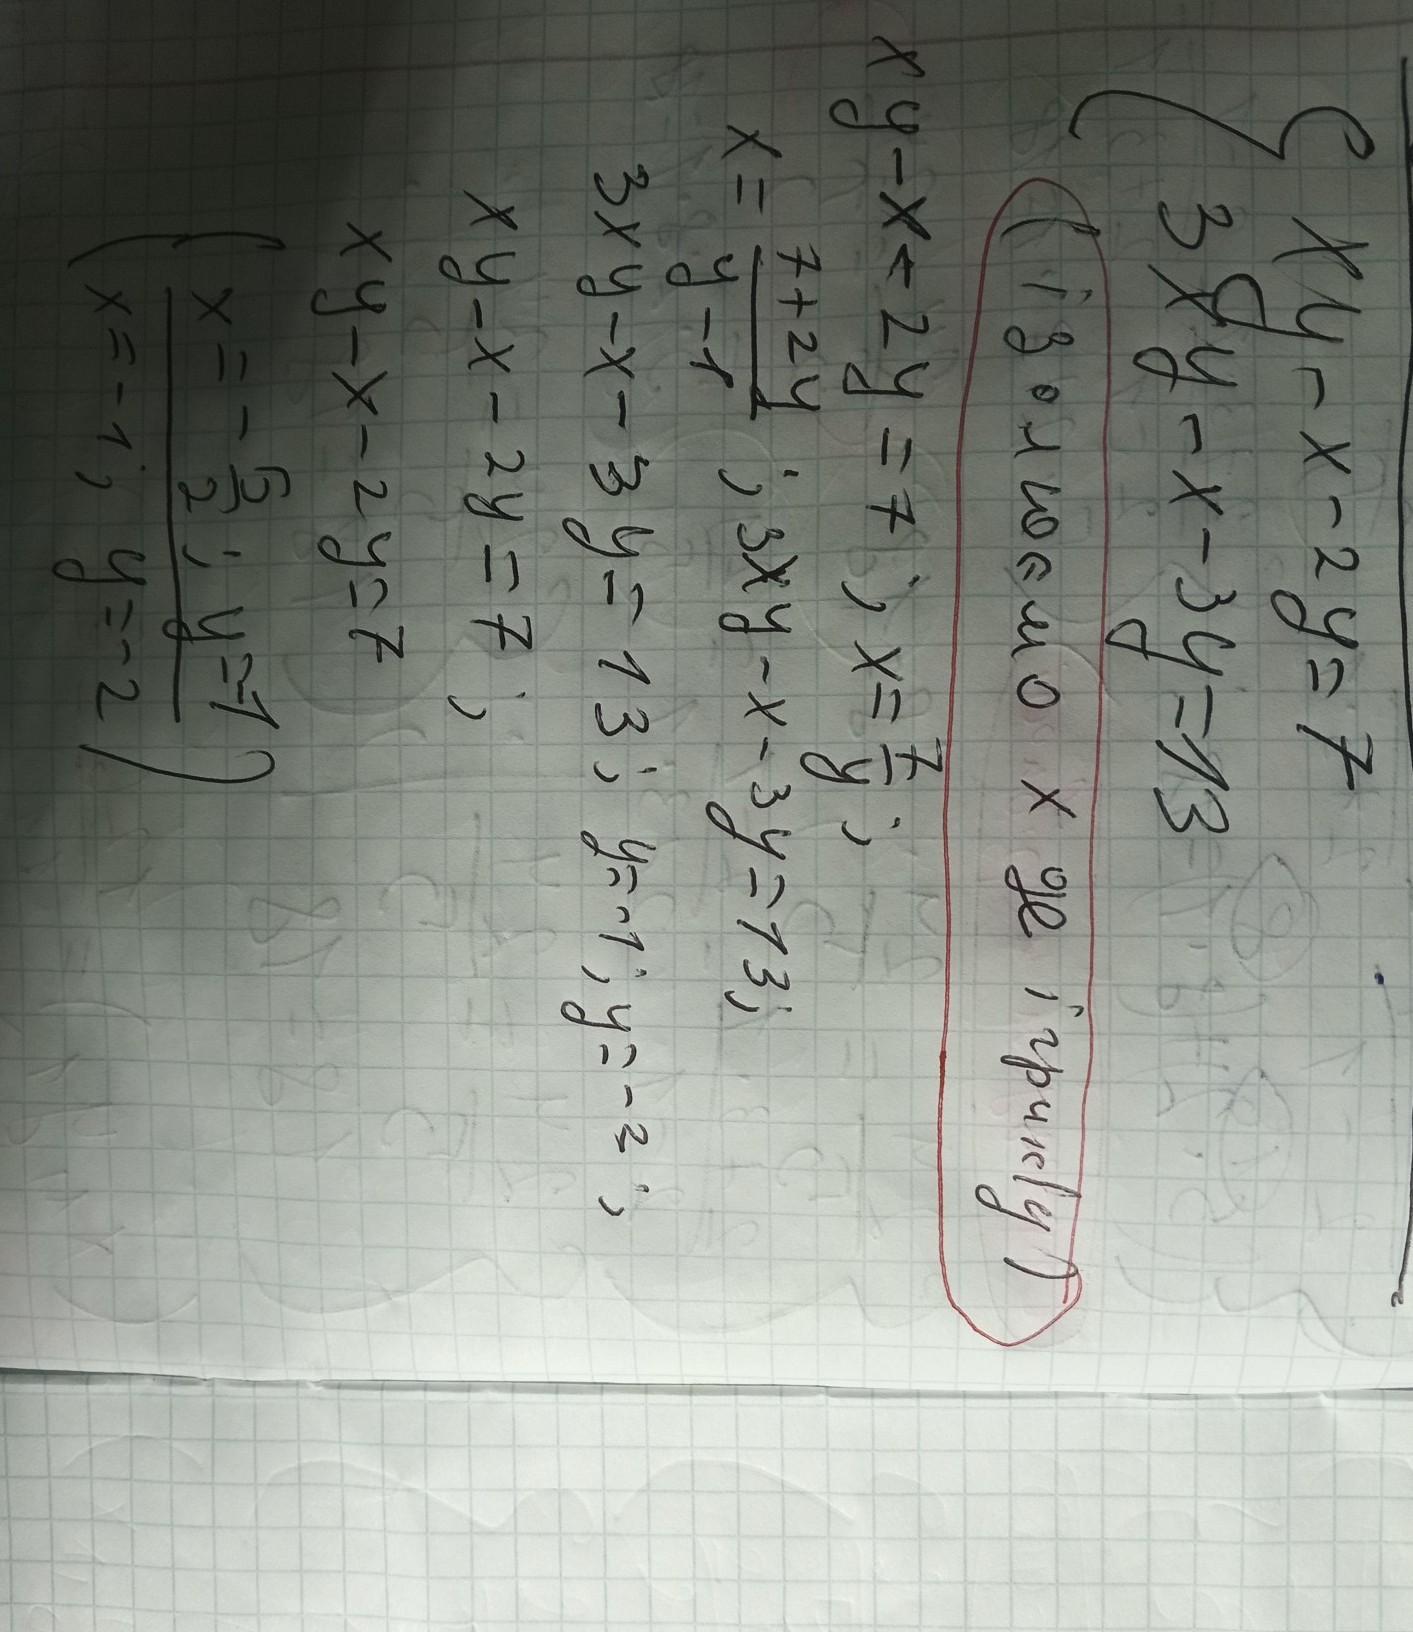 xy - x - 2y = 7
3xy - x - 3y = 13
(ізолюємо x
xy - x - 2y = 7; x = 7/y;
x = 7+2y/y-1; 3xy - x - 3y = 13;
3xy - x - 3y = 13; y = -1; y = -2;
xy - x - 2y = 7;
xy - x - 2y = 7
(x = -5/2; y = -1)
(x = -1; y = -2)